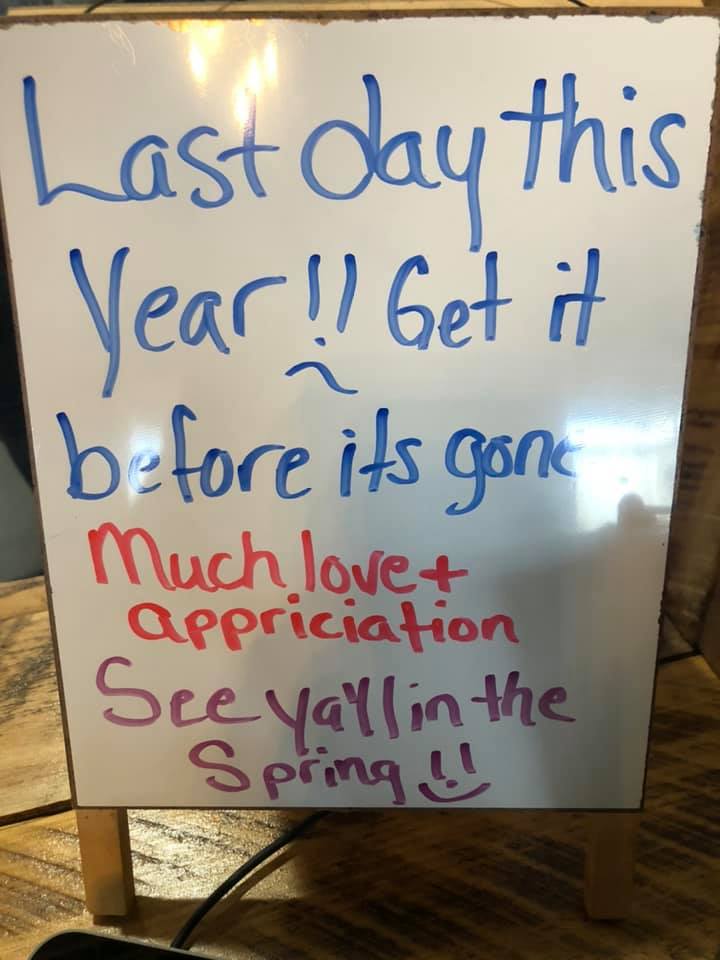 Last day this
Year!! Get it
before its gone
Much love +
appriciation
See ya'll in the
Spring!!